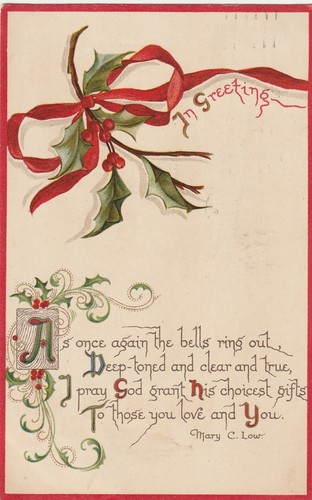 In Greeting
As once again the bells ring out,
Deep-toned and clear and true,
I pray God grant his choicest gifts
To those you love and You.
Mary C. Low.